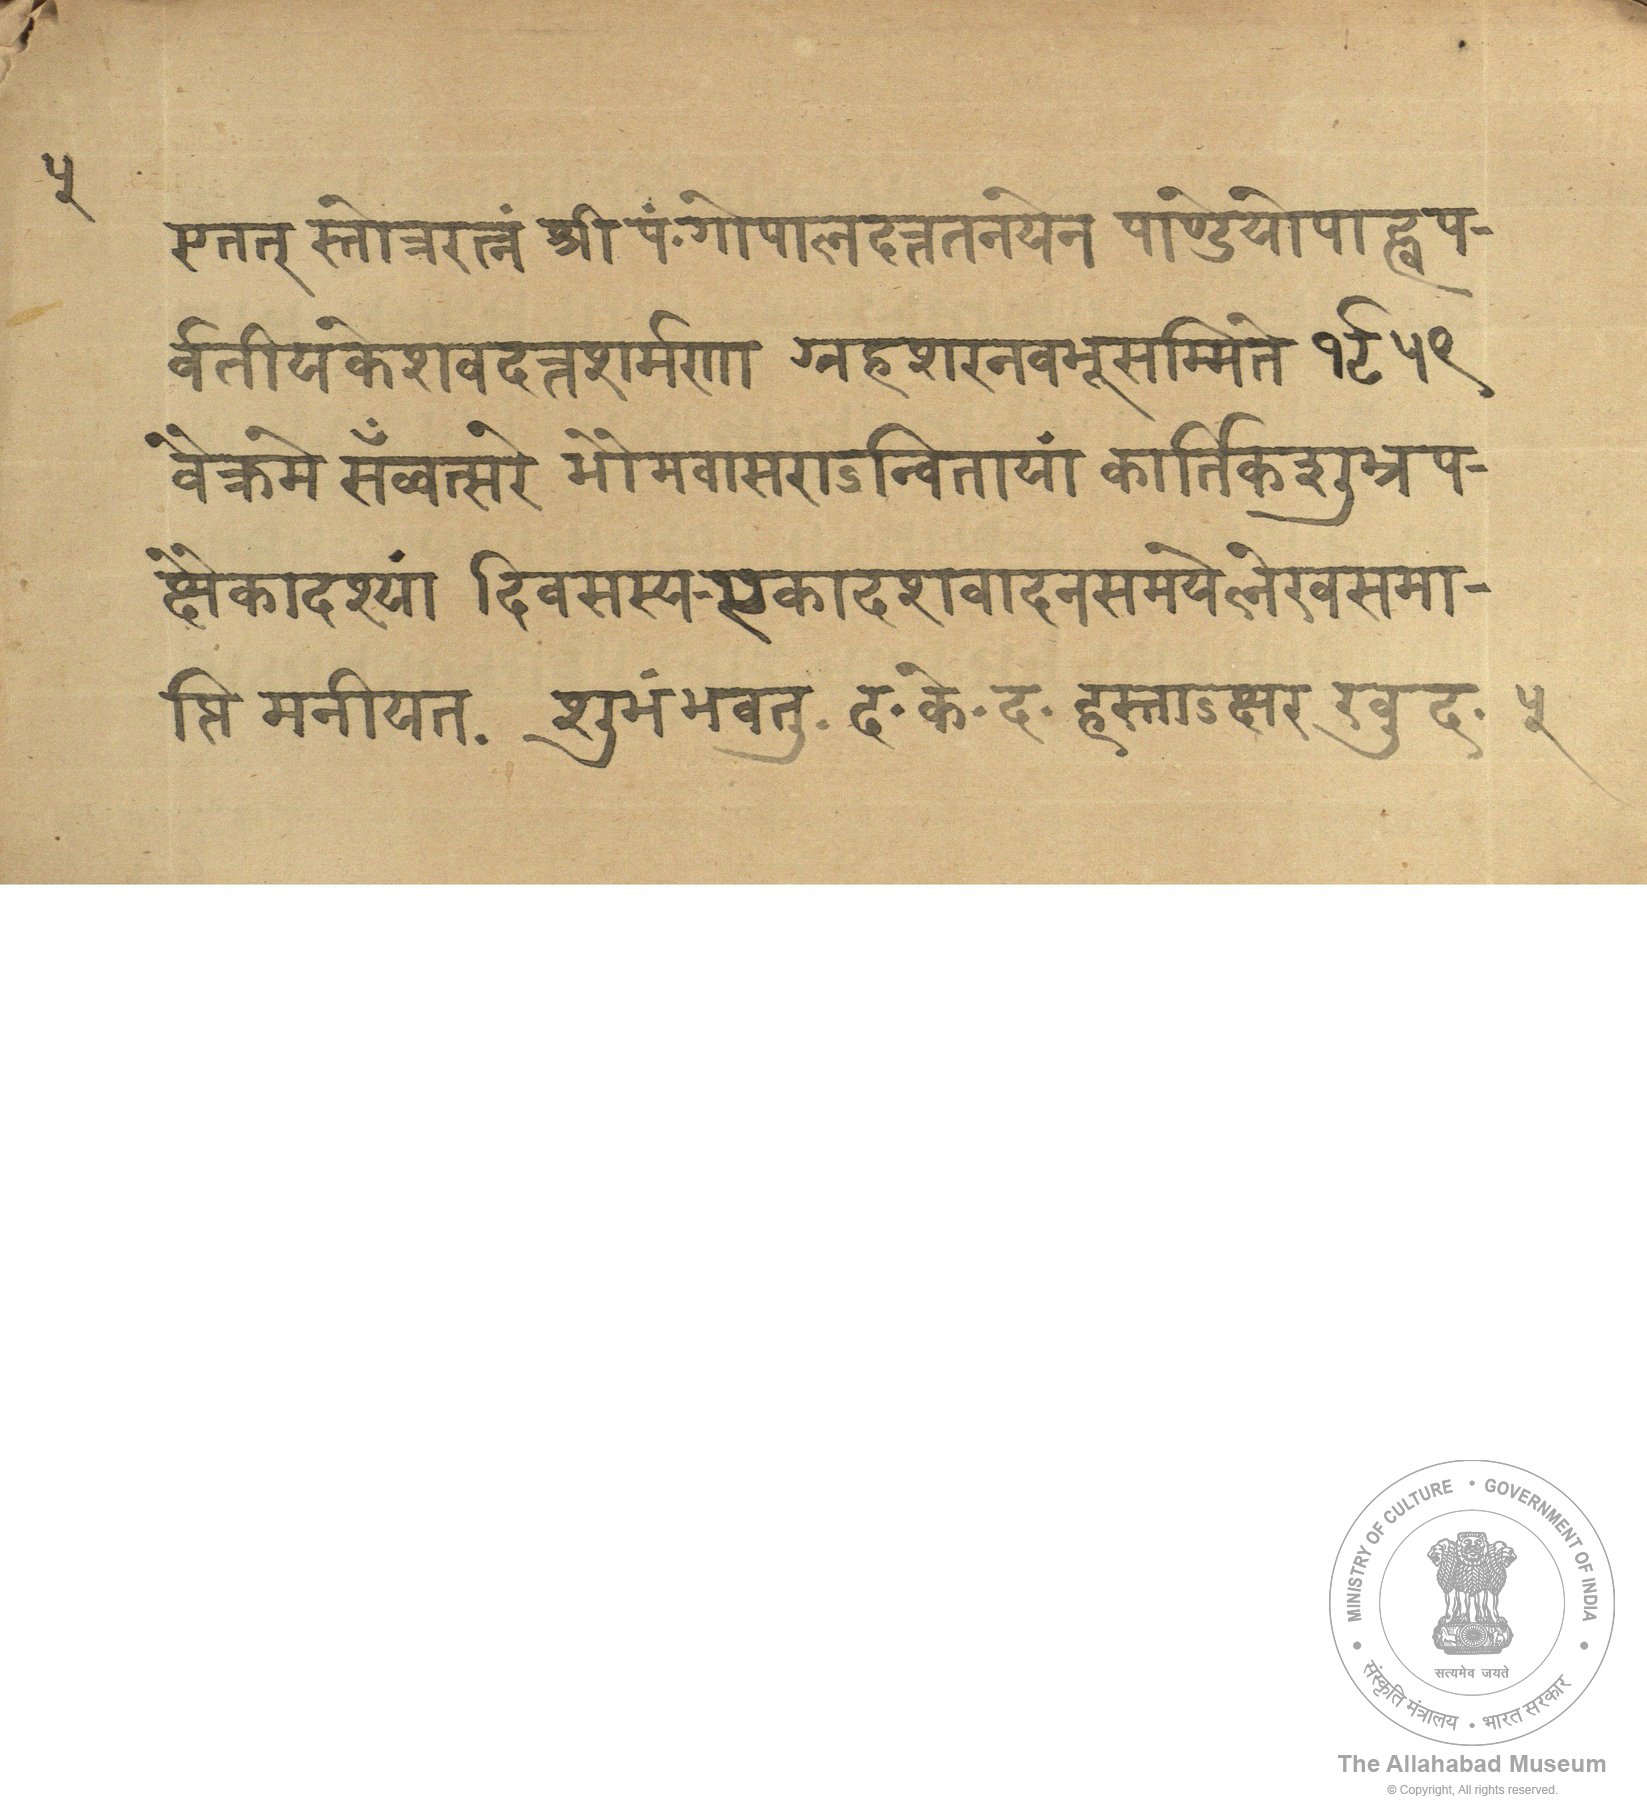 ५
एतत् स्तोत्ररत्नं श्री पं॰गोपालदत्ततनयेन पाण्डेयोपाह्वप-
र्वतीयकेशवदत्तशर्मणा ग्रहशरनवभूसम्मिते १९५९
वैक्रमे सँव्वत्सरे भौमवासराऽन्वितायां कार्तिकशुभ्रप-
क्षैकादश्यां दिवसस्य-एकादशवादनसमये लेखसमा-
प्ति मनीयत. शुभंभवतु. ह॰ के॰ द॰ हस्ताऽक्षर खुद. ५
MINISTRY OF CULTURE • GOVERNMENT OF INDIA
सत्यमेव जयते
संस्कृति मंत्रालय • भारत सरकार
The Allahabad Museum
© Copyright, All rights reserved.